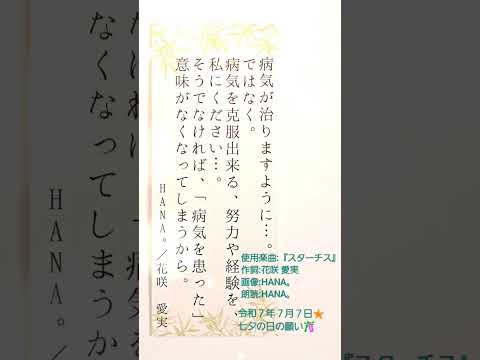 病気が治りますように…。
ではなく。
病気を克服出来る、努力や経験を、
私にください…。
そうでなければ、「病気を患った」
意味がなくなってしまうから。
HANA。／花咲 愛実
使用楽曲:『スターチス』
作詞:花咲 愛実
画像:HANA。
朗読:HANA。
令和７年７月７日⭐
七夕の日の願い🎋